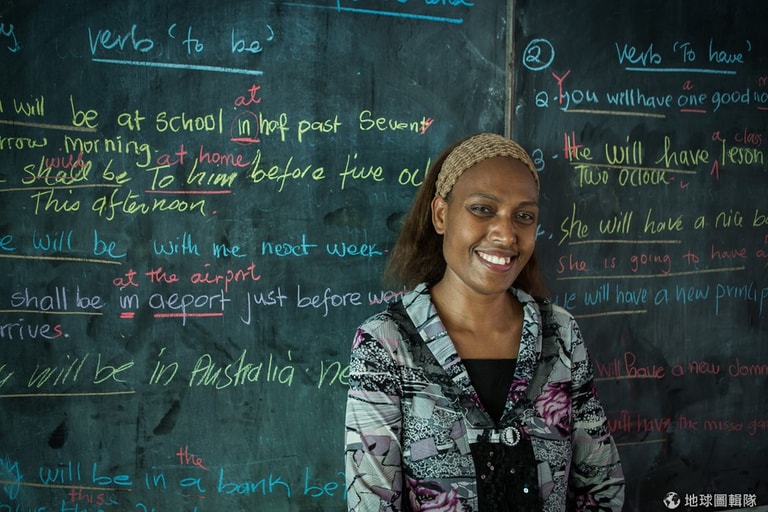 verb 'to be'
will be at school in haf past Sevent
at
rrow morning.
shall be To him before five oc
wuld at home
This afternoon.
will be with me next week.
at the airport
shall be in aeport just before
rrives.
will be in Australia
the
will be in a bank be
this
2
verb 'To have'
a
2. you will have one good
Y
a class
3. He will have lesson
Two oclock.
she will have a nice
she is going to have
will have a new
will have a new
will have the
地球圖輯隊